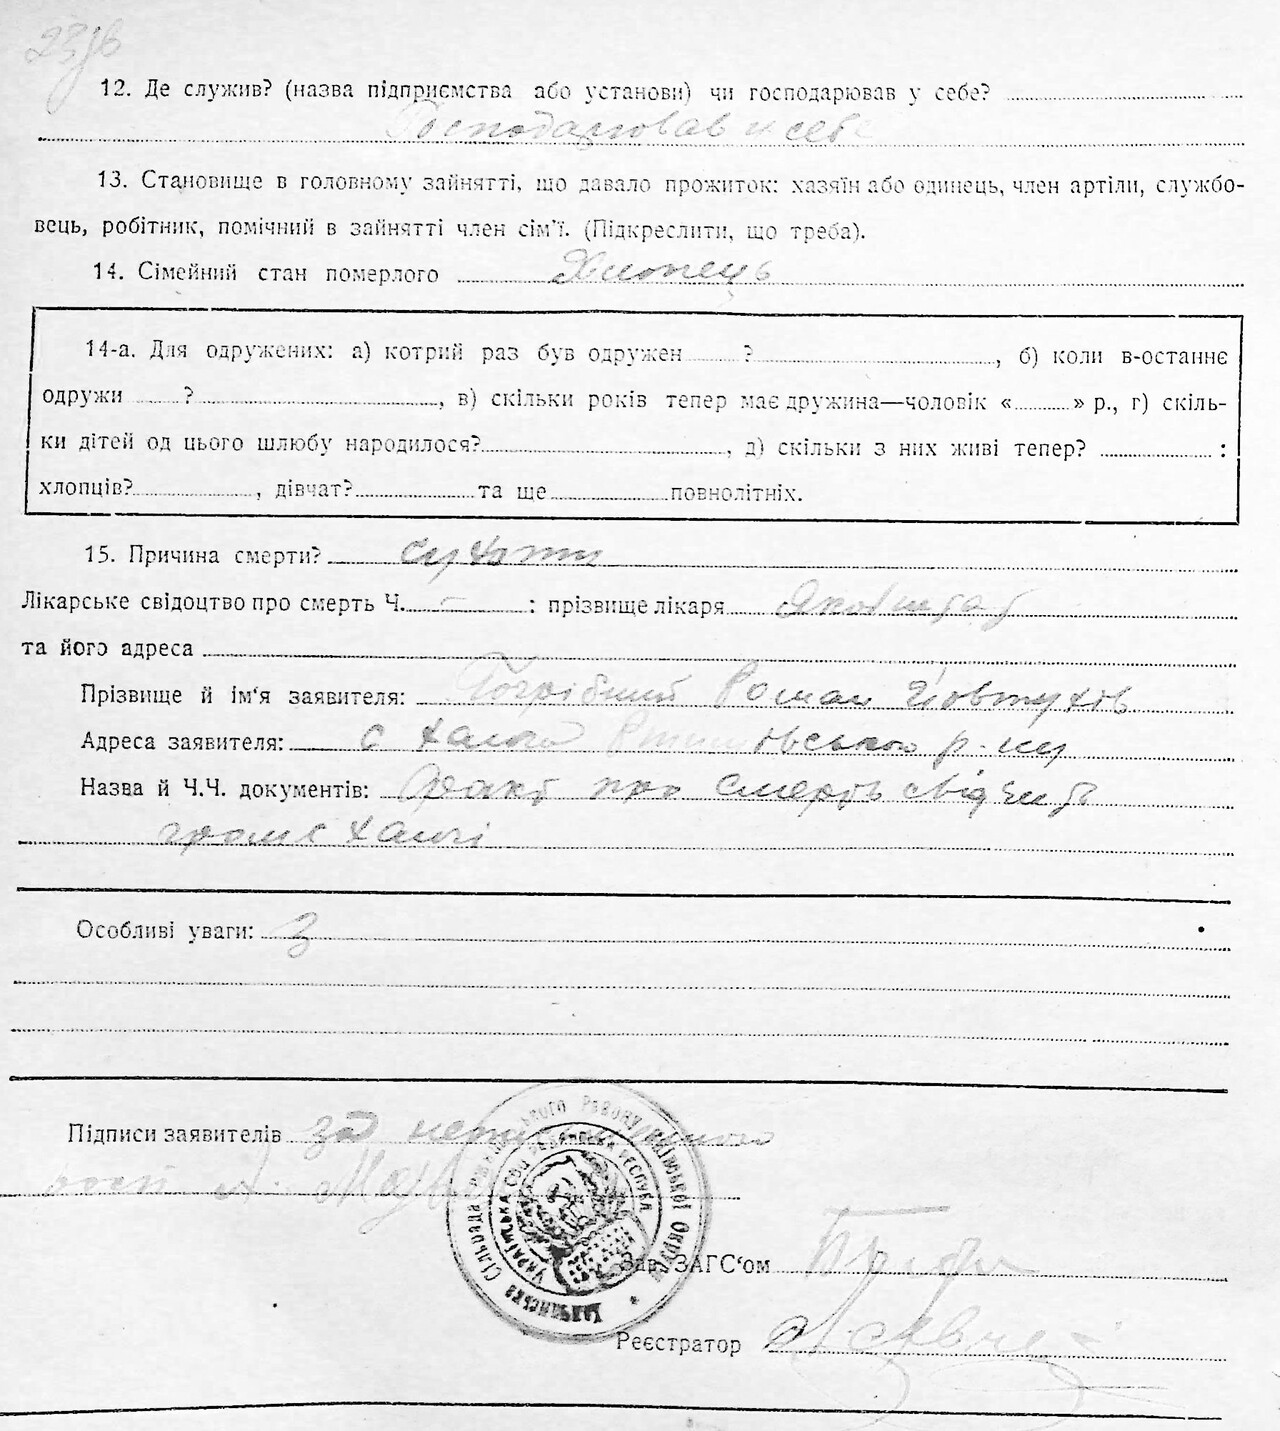 12. Де служив? (назва підприємства або установи) чи господарював у себе?
Господарював у себе
13. Становище в головному зайнятті, що давало прожиток: хазяїн або одинець, член артіли, службо-
вець, робітник, помічний в зайнятті член сім'ї. (Підкреслити, що треба).
14. Сімейний стан померлого Хлопець
14-а. Для одружених: а) котрий раз був одружен ? , б) коли в-останнє
одружи ? , в) скільки років тепер має дружина—чоловік « » р., г) скіль-
ки дітей од цього шлюбу народилося? , д) скільки з них живі тепер? :
хлопців? , дівчат? та ще повнолітніх.
15. Причина смерти? сухоти
Лікарське свідоцтво про смерть Ч. – : прізвище лікаря
та його адреса
Прізвище й ім'я заявителя: Погрібний Роман Йовтухів
Адреса заявителя: с Халча р-ну
Назва й Ч.Ч. документів: Факт про смерть свідчить
гром с Халчі
Особливі уваги: З
Підписи заявителів за
А.
Українська Соц. Радянська Республ.
Халчанська Сільрада Району Київської Округи
Зав. ЗАГС'ом
Реєстратор